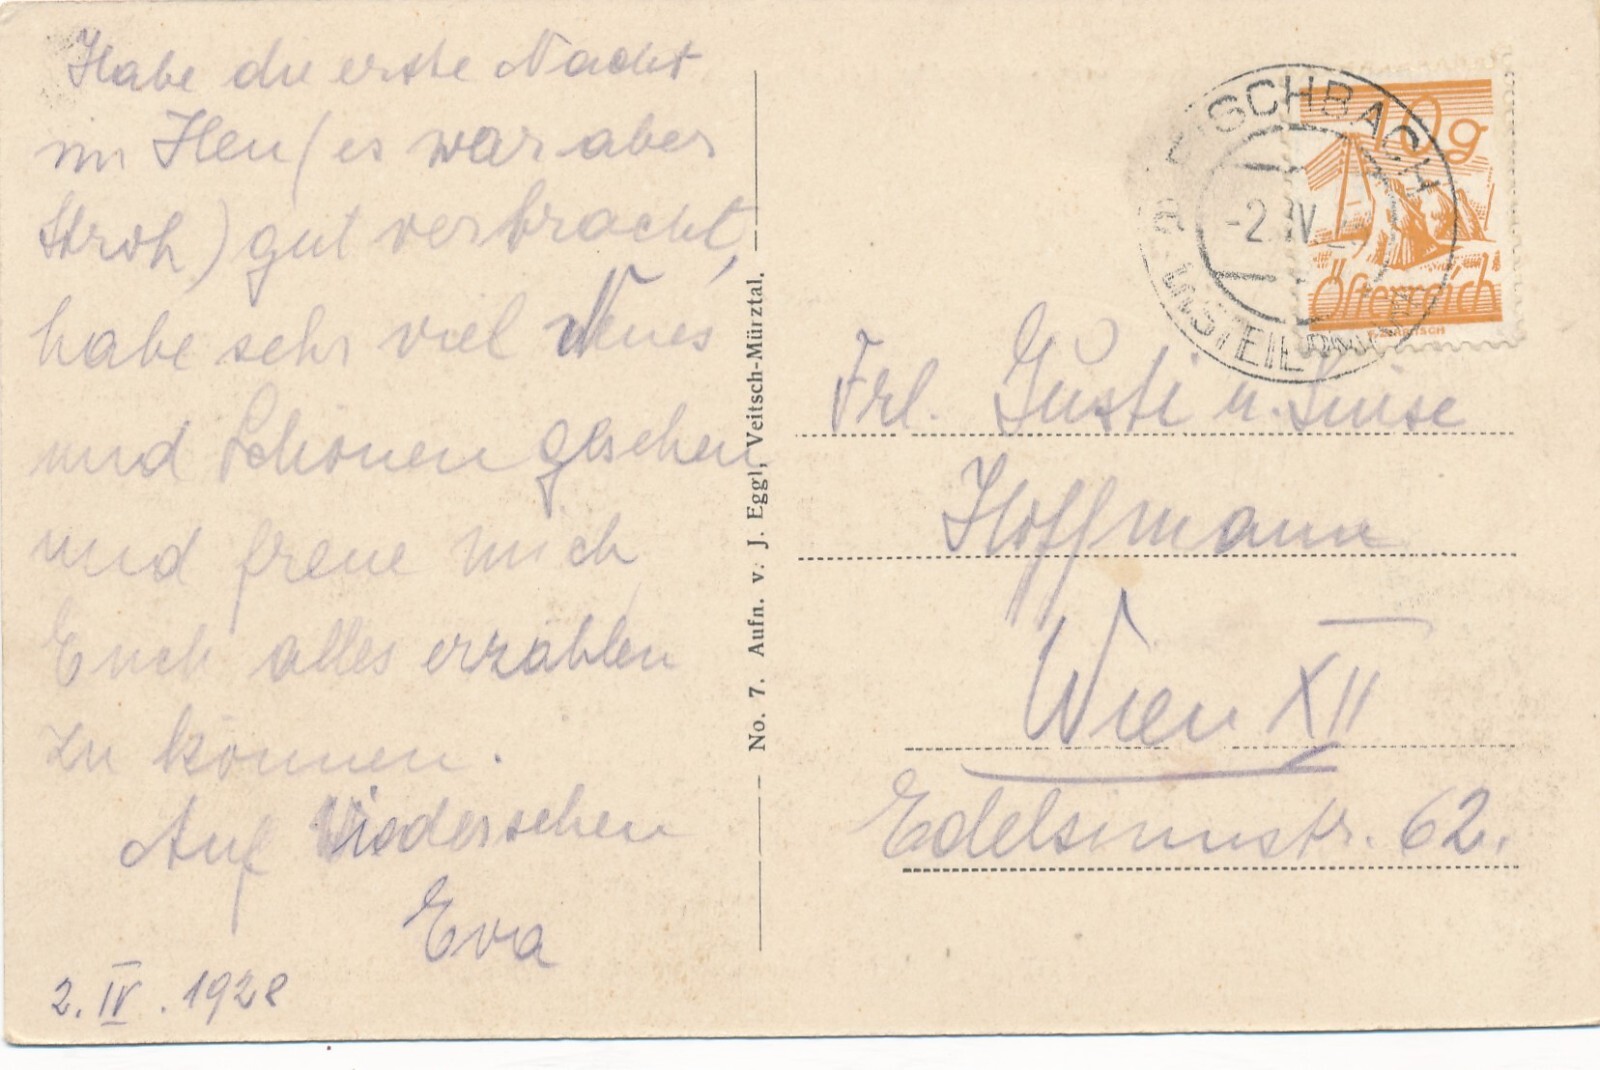 Habe die erste Nacht
im Heu (es war aber
Stroh) gut verbracht,
habe sehr viel Neues
und Schönen gesehen
und freue mich
Euch alles erzählen
zu können.
Auf Wiedersehen
Eva
2. IV. 1928
No. 7. Aufn. v. J. Eggl, Veitsch-Mürztal.
ISCHBACH
-2. IV
10g
Österreich
Frl. Gusti u. Luise
Hoffmann
Wien XII
Edelsinnstr. 62.